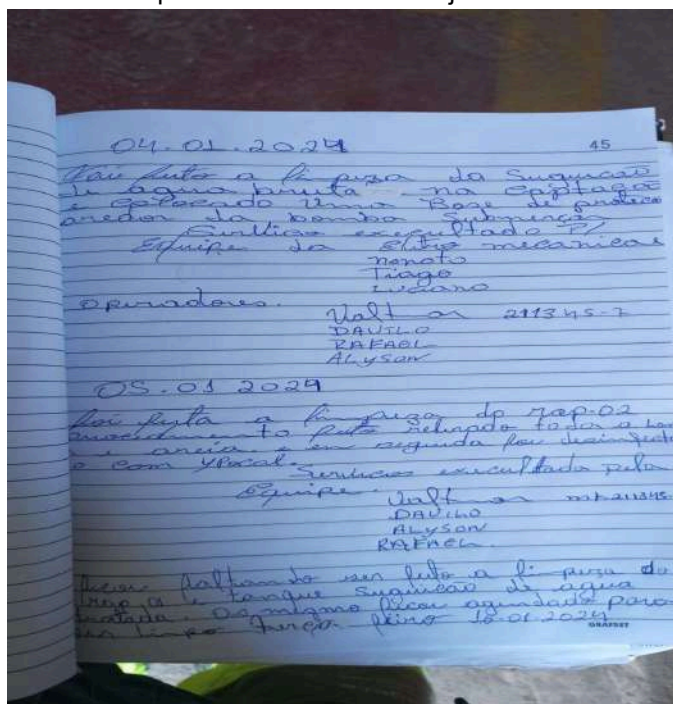 04.01.2024
45
Foi feito a limpeza da Suquicão
de agua bruta na captação
e colocando uma Base de proteco
aredor da bomba Submerça
Serviços executado P/
Equipe da Eletro mecanicas
nonato
Tiago
Luciano
Operadores.
Valt 211345-7
DAVILO
RAFAEL
ALYSON
05.01.2024
Foi feita a limpeza do rap-02
feito retirado toda a
e areia e em seguida foi
com
Serviços executado pela
Equipe.
Valt mt-211345
DAVILO
ALYSON
RAFAEL
ficou faltando ser feito a limpeza do
e tanque suquicão de agua
tratada. Os mesmo ficou agendado para
ser limpo Terça feira 2024
GRAFSET